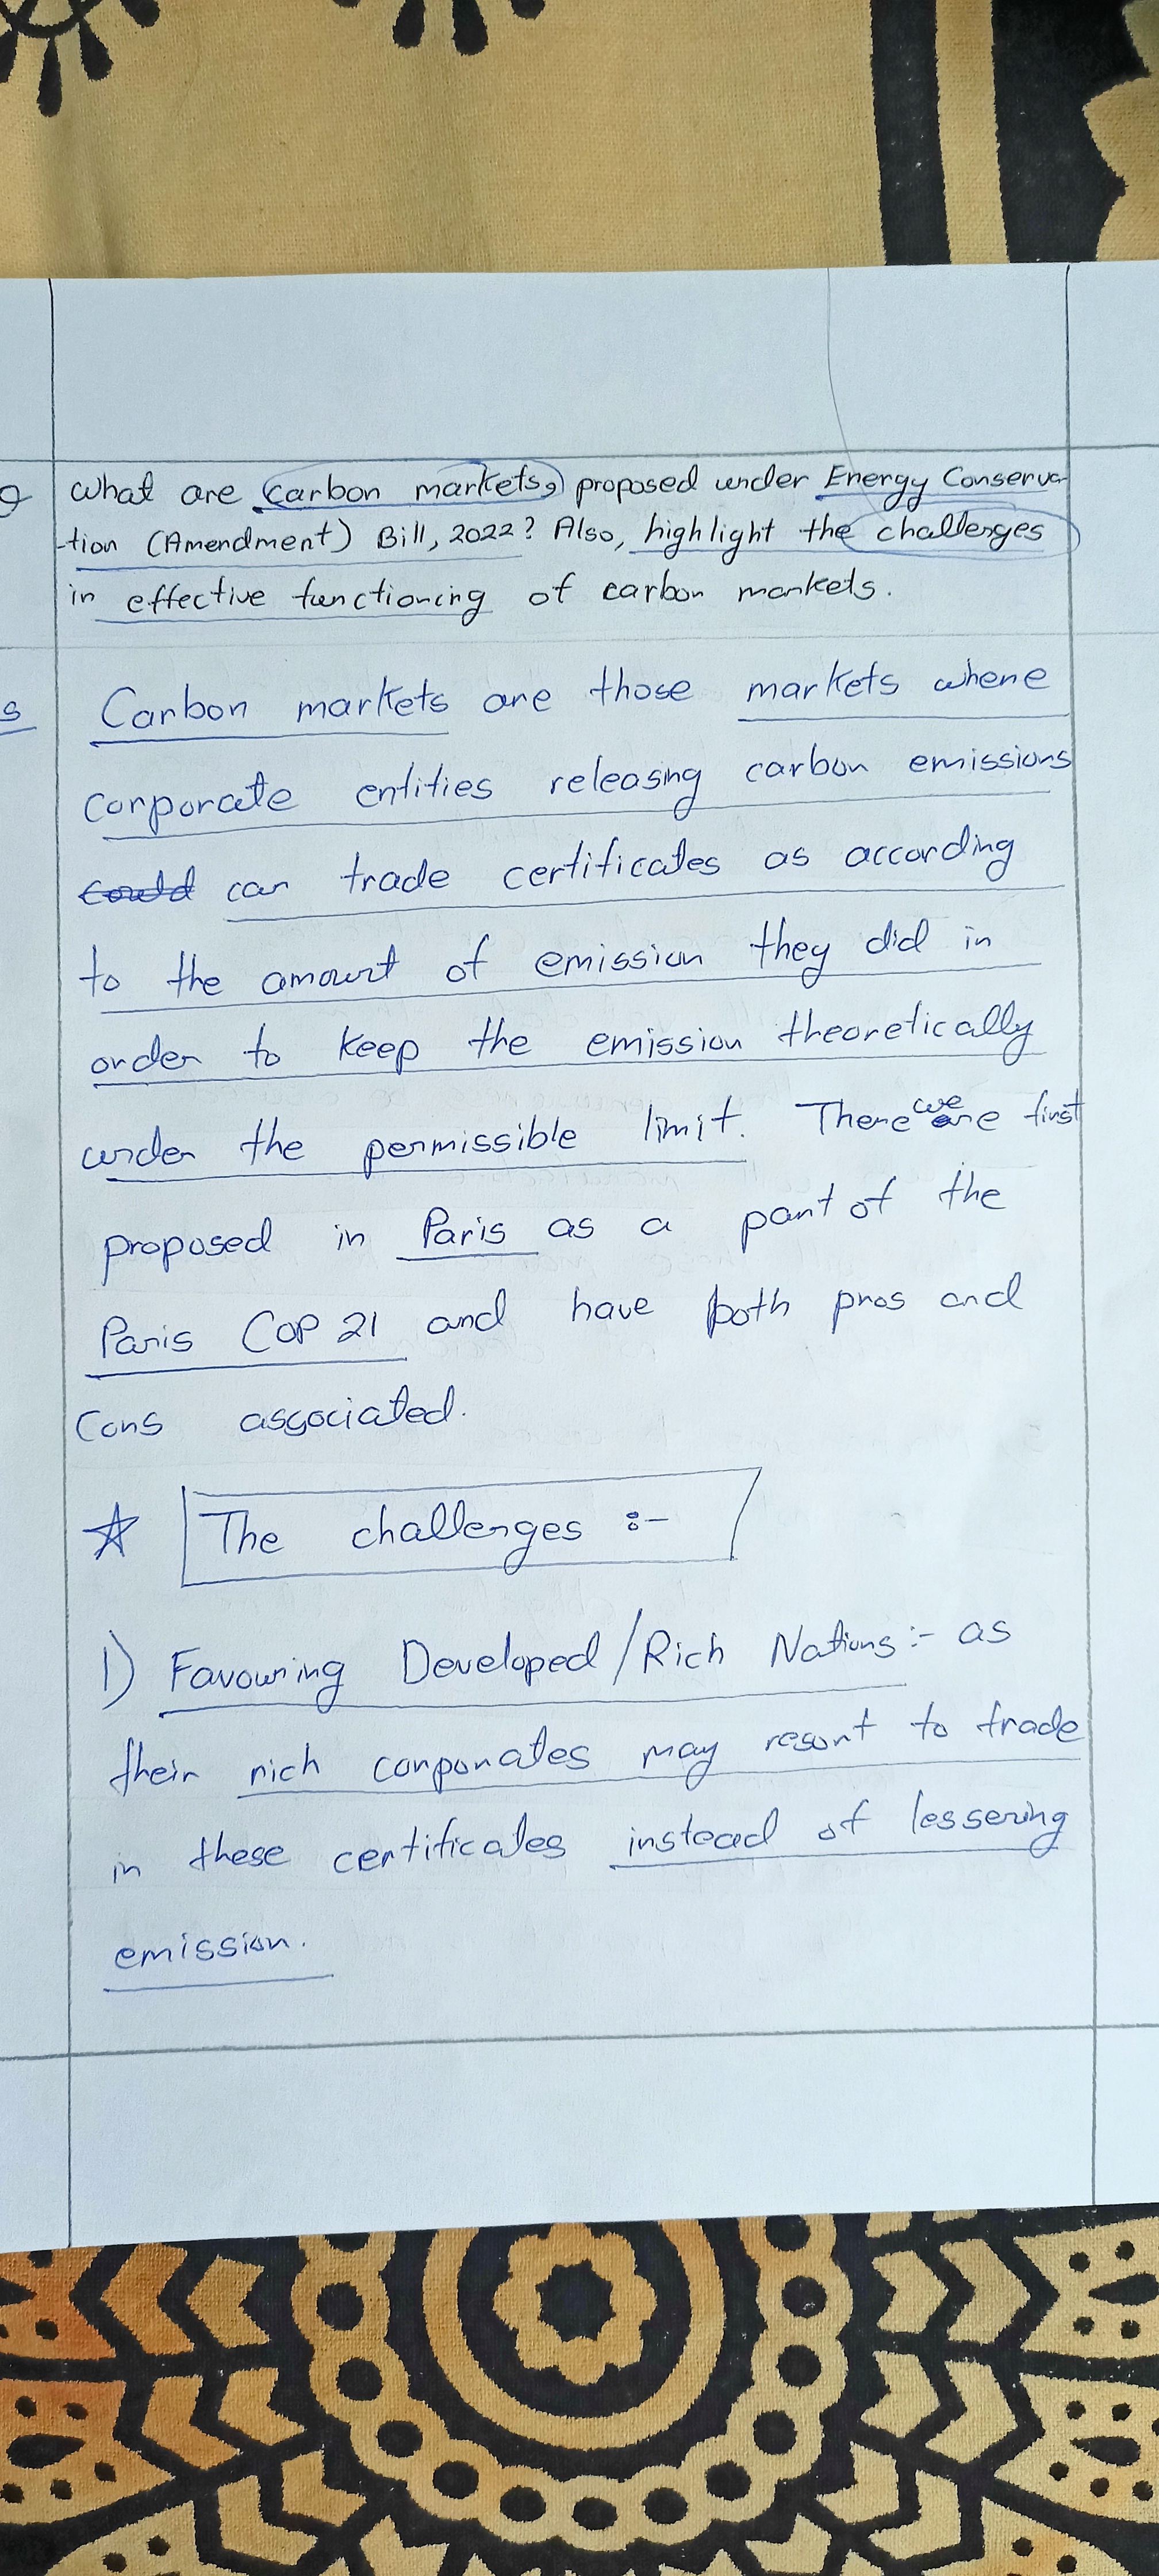 Q what are carbon markets, proposed under Energy Conserva-
-tion (Amendment) Bill, 2022? Also, highlight the challenges
in effective functioning of carbon markets.
s Carbon markets are those markets where
corporate entities releasing carbon emissions
could can trade certificates as according
to the amount of emission they did in
order to keep the emission theoretically
under the permissible limit. There we are first
proposed in Paris as a part of the
Paris COP 21 and have both pros and
cons associated.
☆ The challenges :-
1) Favouring Developed/Rich Nations :- as
their rich corporates may resort to trade
in these certificates instead of lessering
emission.